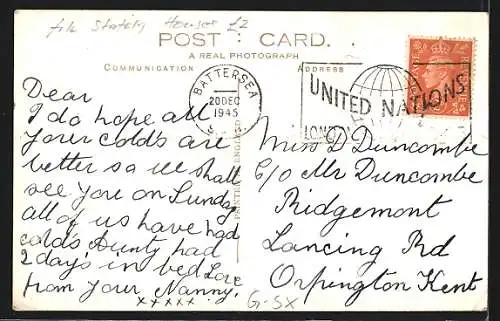 file Stately Houses £2
POST CARD.
A REAL PHOTOGRAPH
COMMUNICATION
ADDRESS
BATTERSEA
20 DEC
1945
UNITED NATIONS
LONDON
PRINTED IN ENGLAND
Dear
I do hope all
your cold's are
better so we shall
see you on Sunday
all of us have had
colds Aunty had
2 day's in bed Love
from your Nanny.
xxxxx
Miss D Duncombe
C/o Mr Duncombe
Ridgemont
Lancing Rd
Orpington Kent
G-SX